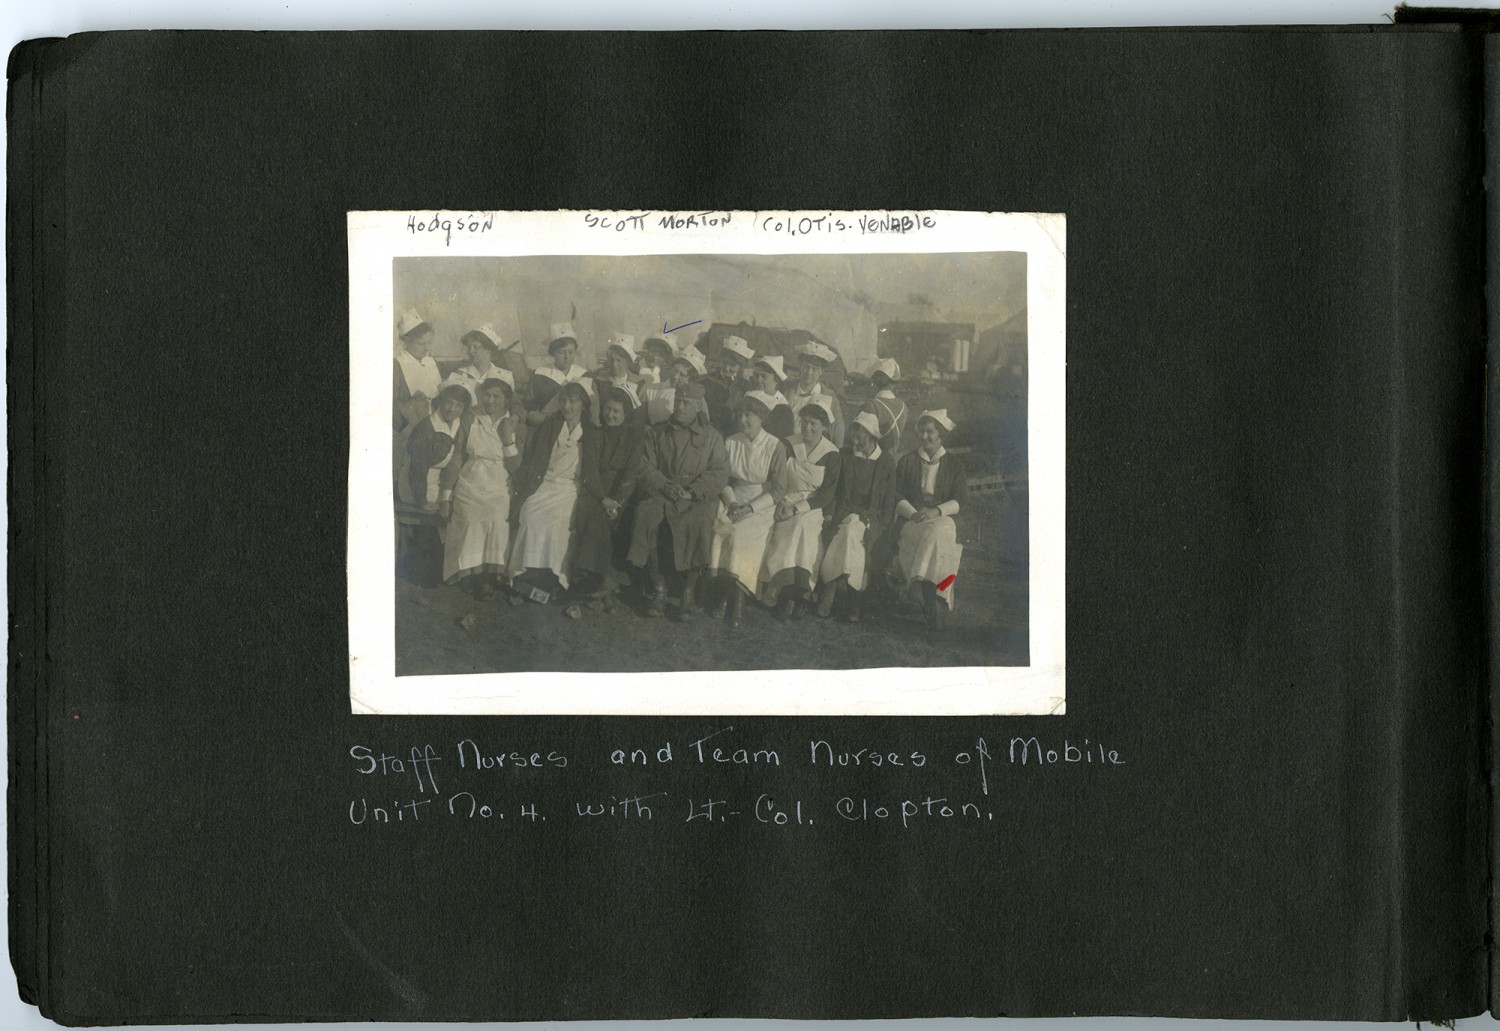 Hodgson SCOTT MORTON Col. OTis. VENABLE
Staff Nurses and Team Nurses of Mobile
Unit No. 4. with Lt.-Col. Clopton.